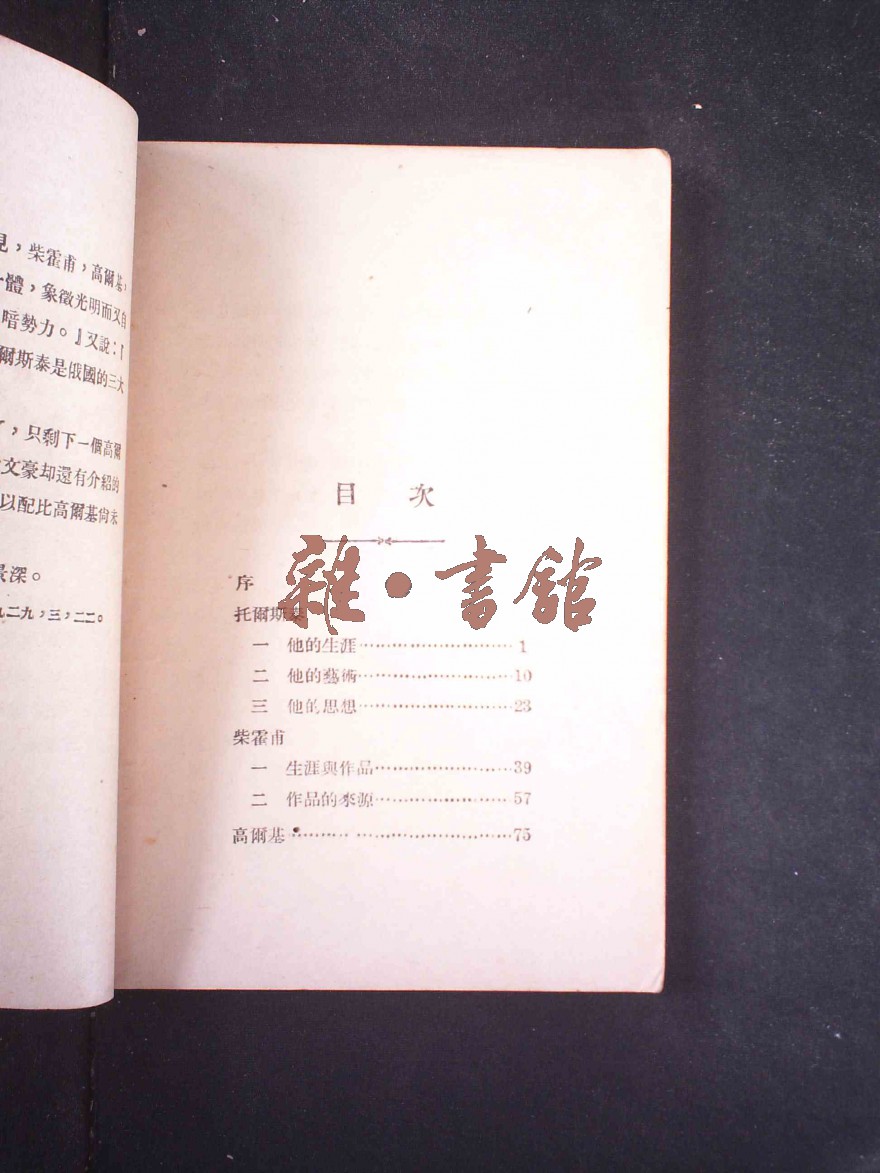 見，柴霍甫，高爾基，
一體，象徵光明而又自
暗勢力。』又說：『
爾斯泰是俄國的三大
，只剩下一個高爾
文豪却還有介紹的
以配比高爾基尙未
景深。
九二九，三，二二。
目 次
序
托爾斯泰
一 他的生涯……………………1
二 他的藝術……………………10
三 他的思想……………………23
柴霍甫
一 生涯與作品…………………39
二 作品的來源…………………57
高爾基……………………………75
雜·書館